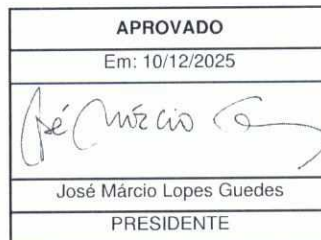 APROVADO
Em: 10/12/2025
José Márcio
José Márcio Lopes Guedes
PRESIDENTE